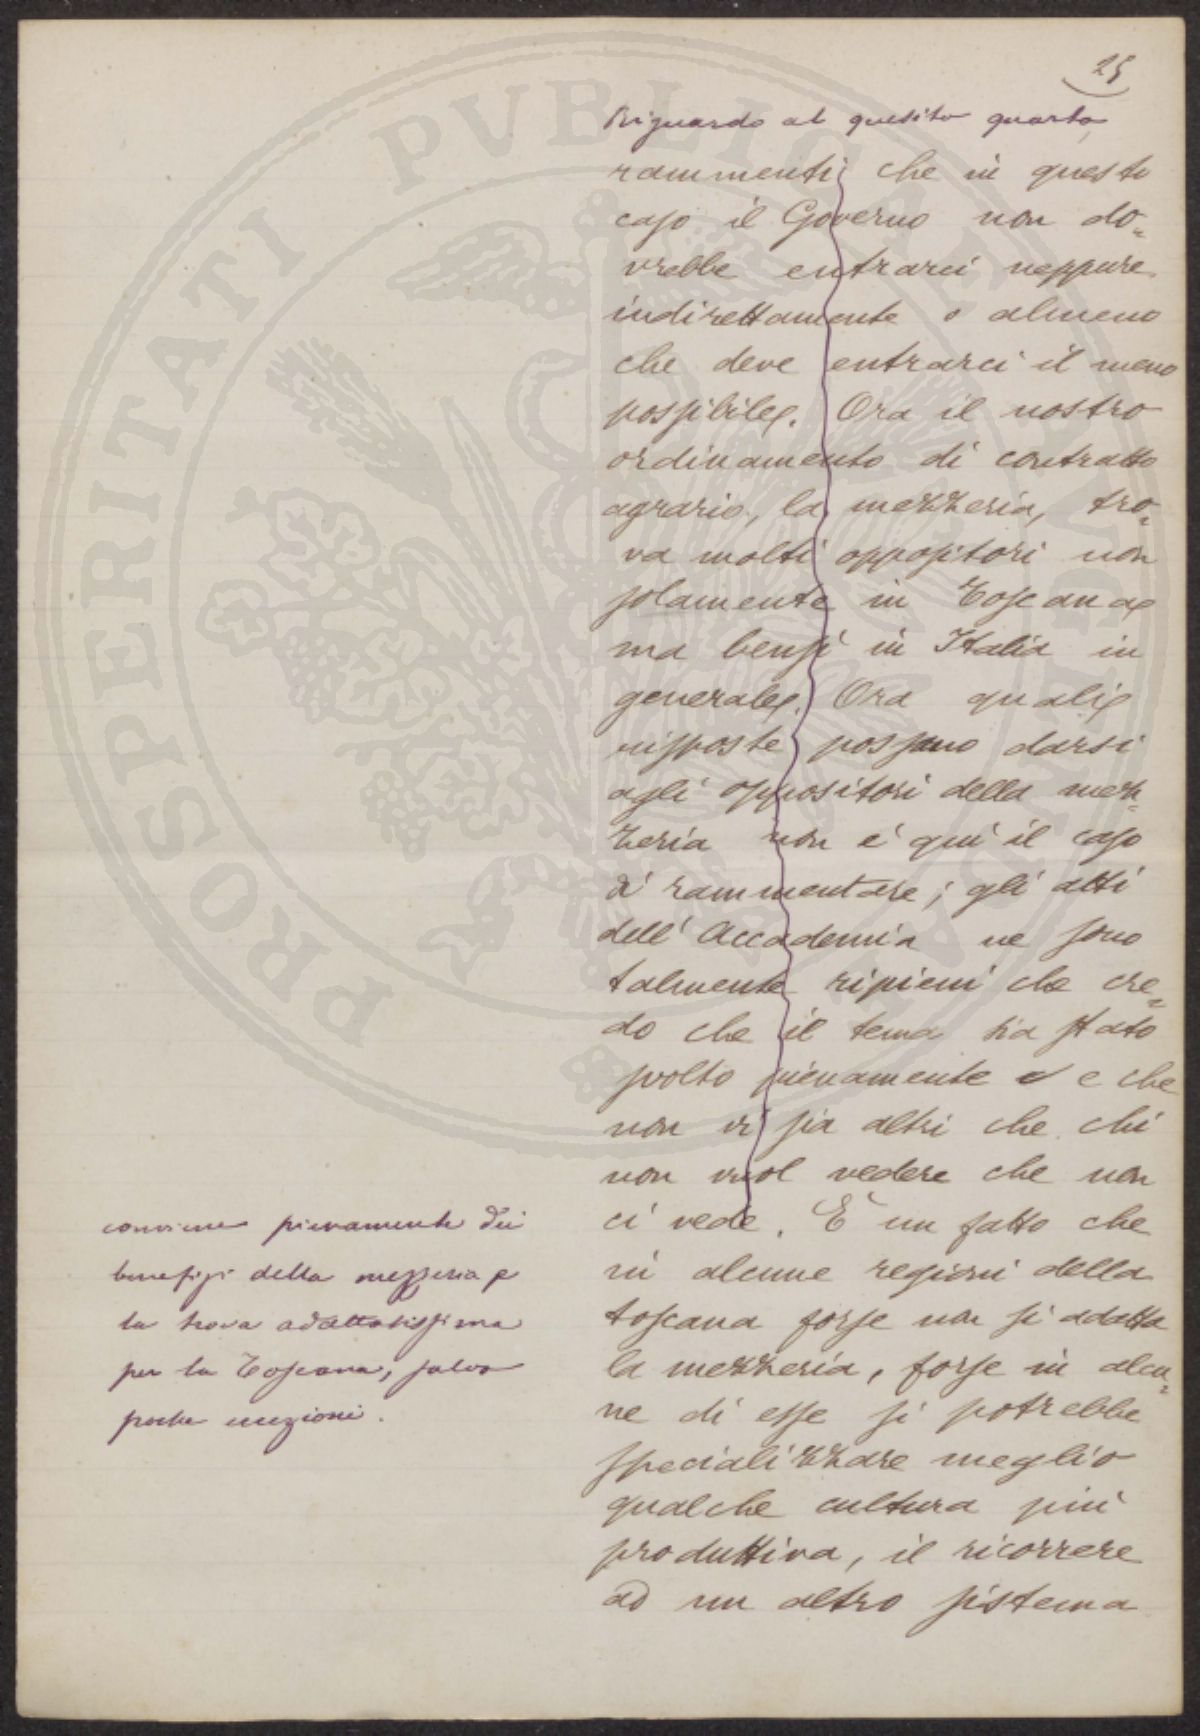 25
Riguardo al quesito quarto
rammenti che in questo
caso il Governo non do=
vrebbe entrarci neppure
indirettamente o almeno
che deve entrarci il meno
possibile. Ora il nostro
ordinamento di contratto
agrario, la mezzeria, tro=
va molti oppositori non
solamente in Toscana
ma bensì in Italia in
generale. Ora quali
risposte possano darsi
agli oppositori della mez=
zeria non è quì il caso
di rammentare; gli atti
dell'Accademia ne sono
talmente ripieni che cre=
do che il tema sia stato
svolto pienamente e che
non vi sia altri che chi
non vuol vedere che non
ci vede. È un fatto che
in alcune regioni della
toscana forse non si adatta
la mezzeria, forse in alcu=
ne di esse si potrebbe
specializzare meglio
qualche cultura più
produttiva, il ricorrere
ad un altro sistema
conviene pienamente dei
benefizi della mezzeria e
la trova adattatissima
per la Toscana, salvo
poche eccezioni.
PROSPERITATI PVBLICAE AVGENDAE